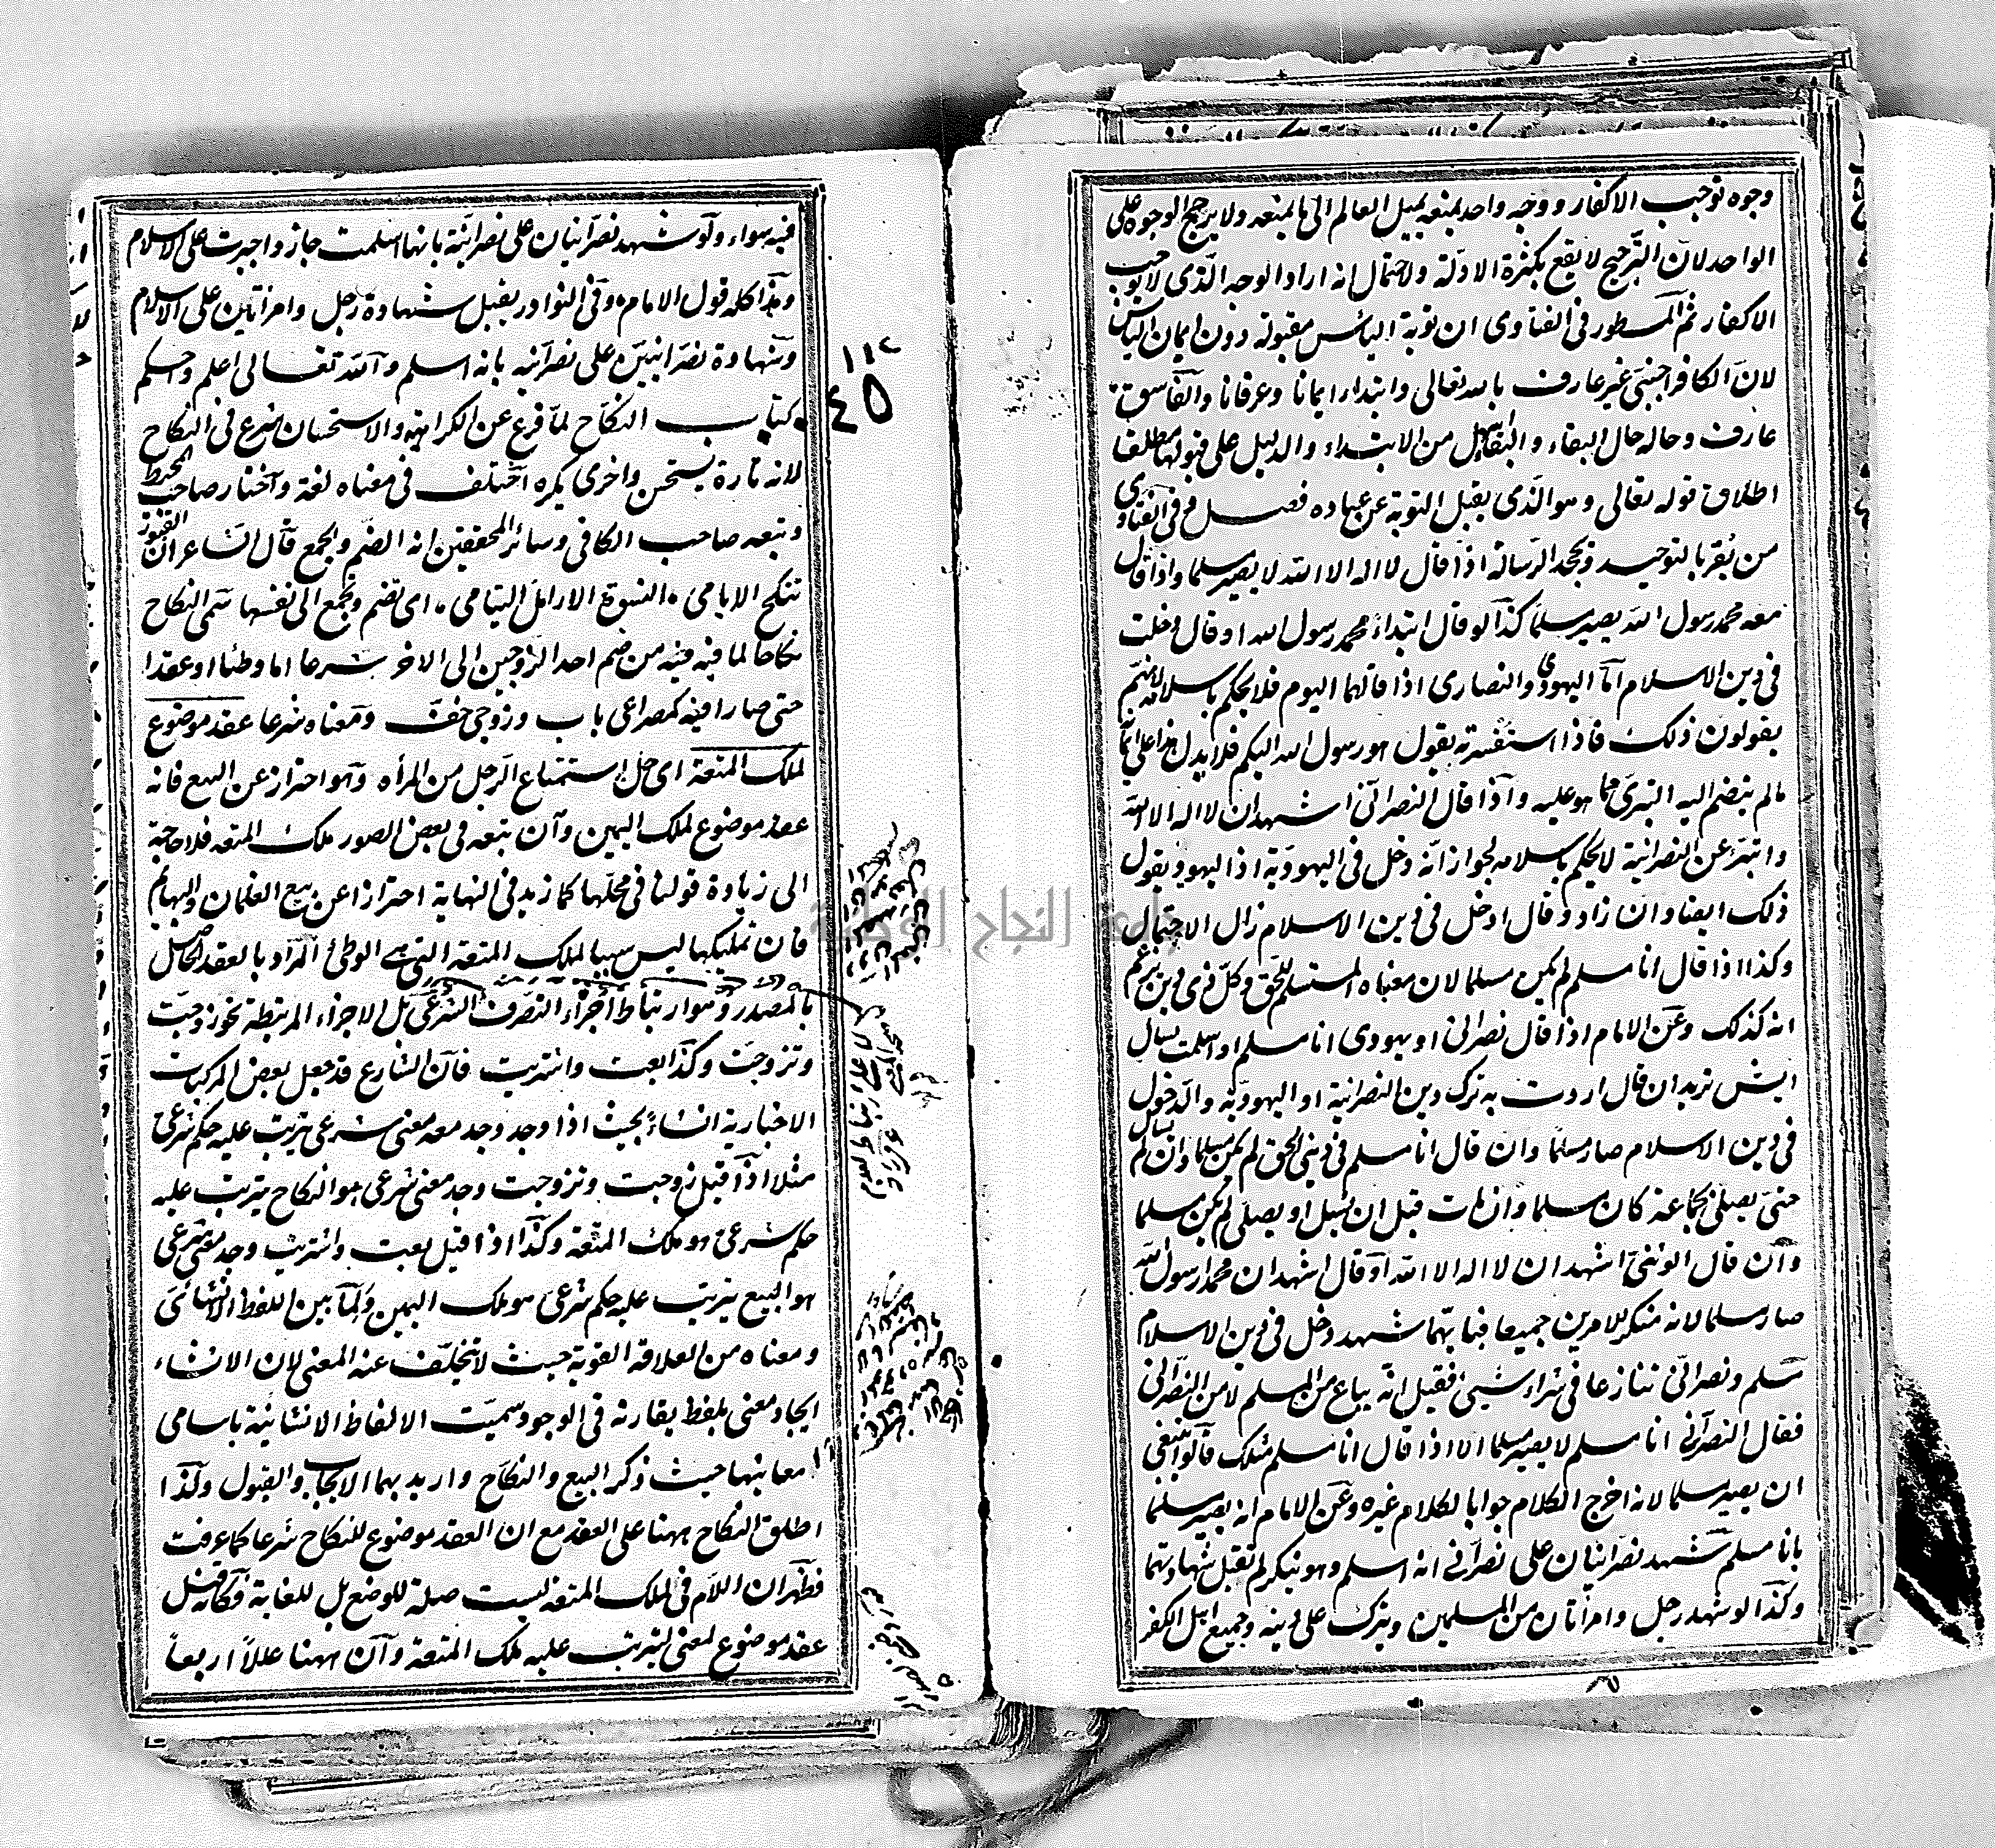 وجوه توجب الاكفار ووجه واحد يمنعه يميل العالم الى ما يمنعه ولا يرجح الوجوه على
الواحد لان الترجيح لا يقع بكثرة الادلة ولاحتمال انه اراد الوجه الذى لا يوجب
الاكفار ثم المسطور فى الفتاوى ان توبة اليائس مقبولة دون ايمان اليائس
لان الكافر اجنبى غير عارف بالله تعالى وابتداء ايمانا وعرفانا والفاسق
عارف وحاله حال البقاء والبقاء اسهل من الابتداء والدليل على قبولها مطلقا
اطلاق قوله تعالى وهو الذى يقبل التوبة عن عباده فصل فى الفتاوى
من يقر بالتوحيد ويجحد الرسالة اذا قال لا اله الا الله لا يصير مسلما واذا قال
معه محمد رسول الله يصير مسلما كذا لو قال ابتداء محمد رسول الله او قال دخلت
فى دين الاسلام اما اليهودى والنصارى اذا قالهما اليوم فلا يحكم باسلامه لانهم
يقولون ذلك فاذا استفسرته يقول هو رسول الله اليكم فلا يدل هذا على ايمانه
مالم ينضم اليه التبرى مما هو عليه واذا قال النصرانى اشهد ان لا اله الا الله
واتبرء عن النصرانية لا يحكم باسلامه لجواز انه دخل فى اليهودية اذ اليهود يقول
ذلك ايضا وان زاد وقال ادخل فى دين الاسلام زال الاحتمال
وكذا اذا قال انا مسلم لم يكن مسلما لان معناه المستسلم للحق وكل ذى دين يزعم
انه كذلك وعن الامام اذا قال نصرانى او يهودى انا مسلم او اسلمت يسال
ايش تريد ان قال اردت به ترك دين النصرانية او اليهودية والدخول
فى دين الاسلام صار مسلما وان قال انا مسلم فى دينى الحق لم يكن مسلما وان لم يسال
حتى يصلى بجماعة كان مسلما وان مات قبل ان يسئل او يصلى لم يكن مسلما
وان قال الوثنى اشهد ان لا اله الا الله او قال اشهد ان محمدا رسول الله
صار مسلما لانه منكر للامرين جميعا فبايهما شهد دخل فى دين الاسلام
مسلم ونصرانى تنازعا فى شراء شيئ فقيل انه يباع من المسلم لا من النصرانى
فقال النصرانى انا مسلم لا يصير مسلما الا اذا قال انا مسلم مثلك قالوا ينبغى
ان يصير مسلما لانه اخرج الكلام جوابا لكلام غيره وعن الامام انه يصير مسلما
بانا مسلم شهد نصرانيان على نصرانى انه اسلم وهو ينكر لم تقبل شهادتهما
وكذا لو شهد رجل وامراتان من المسلمين ويترك على دينه وجميع اهل الكفر
فيه سواء ولو شهد نصرانيان على نصرانية بانها اسلمت جاز واجبرت على الاسلام
وهذا كله قول الامام وفى النوادر يقبل شهادة رجل وامراتين على الاسلام
وشهادة نصرانيين على نصرانى بانه اسلم والله تعالى اعلم واحكم
كتاب النكاح لما فرغ عن الكراهية والاستحسان شرع فى النكاح
لانه تارة يستحسن واخرى يكره اختلف فى معناه لغة واختار صاحب المحيط
وتبعه صاحب الكافى وسائر المحققين انه الضم والجمع قال الشاعر ان القبور
تنكح الايامى النسوة الارامل اليتامى اى تضم وتجمع الى نفسها سمى النكاح
نكاحا لما فيه من ضم احد الزوجين الى الاخر شرعا اما وطئا او عقدا
حتى صارا فيه كمصراعى باب وزوجى خف ومعناه شرعا عقد موضوع
لملك المتعة اى حل استمتاع الرجل من المرأه وهو احتراز عن البيع فانه
عقد موضوع لملك اليمين وان تبعه فى بعض الصور ملك المتعه فلا حاجة
الى زيادة قولنا فى محلها كما زيد فى النهاية احترازا عن بيع الغلمان والبهائم
فان تمليكها ليس سببا لملك المتعة التى هى الوطئ المراد بالعقد الحاصل
بالمصدر وهو ارتباط اجزاء التصرف الشرعى بل الاجزاء المرتبطة نحو زوجت
وتزوجت وكذا بعت واشتريت فان الشارع قد جعل بعض المركبات
الاخبارية انشاء بحيث اذا وجد وجد معه معنى شرعى يترتب عليه حكم شرعى
مثلا اذا قيل زوجت وتزوجت وجد معنى شرعى هو النكاح يترتب عليه
حكم شرعى هو ملك المتعة وكذا اذا قيل بعت واشتريت وجد معنى شرعى
هو البيع يترتب عليه حكم شرعى هو ملك اليمين ولما بين اللفظ الانشائى
ومعناه من العلاقة القوية حيث لا يتخلف عنه المعنى لان الانشاء
ايجاد معنى بلفظ يقارنه فى الوجود سميت الالفاظ الانشائية باسامى
معانيها حيث ذكر البيع والنكاح واريد بهما الايجاب والقبول وكذا
اطلق النكاح ههنا على العقد مع ان العقد موضوع للنكاح شرعا كما عرفت
فظهر ان اللام فى لملك المتعة ليست صلة للوضع بل للغاية فكانه قيل
عقد موضوع لمعنى ليترتب عليه ملك المتعة وان ههنا عللا اربعا
١١٢
٤٥
جامعة النجاح الوطنية